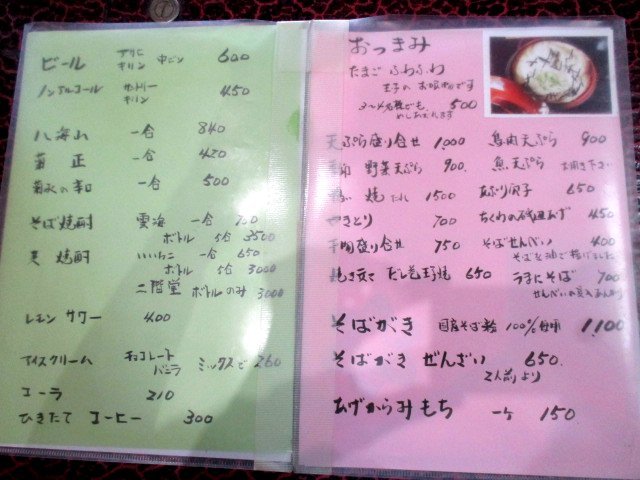 ビール アサヒ キリン 中ビン 600
ノンアルコール サントリー キリン 450
八海山 一合 840
菊正 一合 420
菊水の辛口 一合 500
そば焼酎 雲海 一合 700
ボトル 5合 3500
麦焼酎 いいちこ 一合 650
ボトル 5合 3000
二階堂 ボトルのみ 3000
レモンサワー 400
アイスクリーム チョコレート バニラ ミックスで 260
コーラ 210
ひきたて コーヒー 300
おつまみ
たまごふわふわ
3〜4名様でも 500
めしあがれます
天ぷら盛り合せ 1,000
野菜天ぷら 900
焼 たれ 1500
やきとり 700
盛り合せ 750
だし巻玉子焼 650
鳥肉天ぷら 900
魚天ぷら お聞き下さい
あぶり餃子 650
ちくわの磯辺あげ 450
そばせんべい 400
そばを油で揚げました
うまにそば 700
そばがき 国産そば粉 100%使用 1,100
そばがき ぜんざい 650
2人前より
あげからみもち 一ケ 150